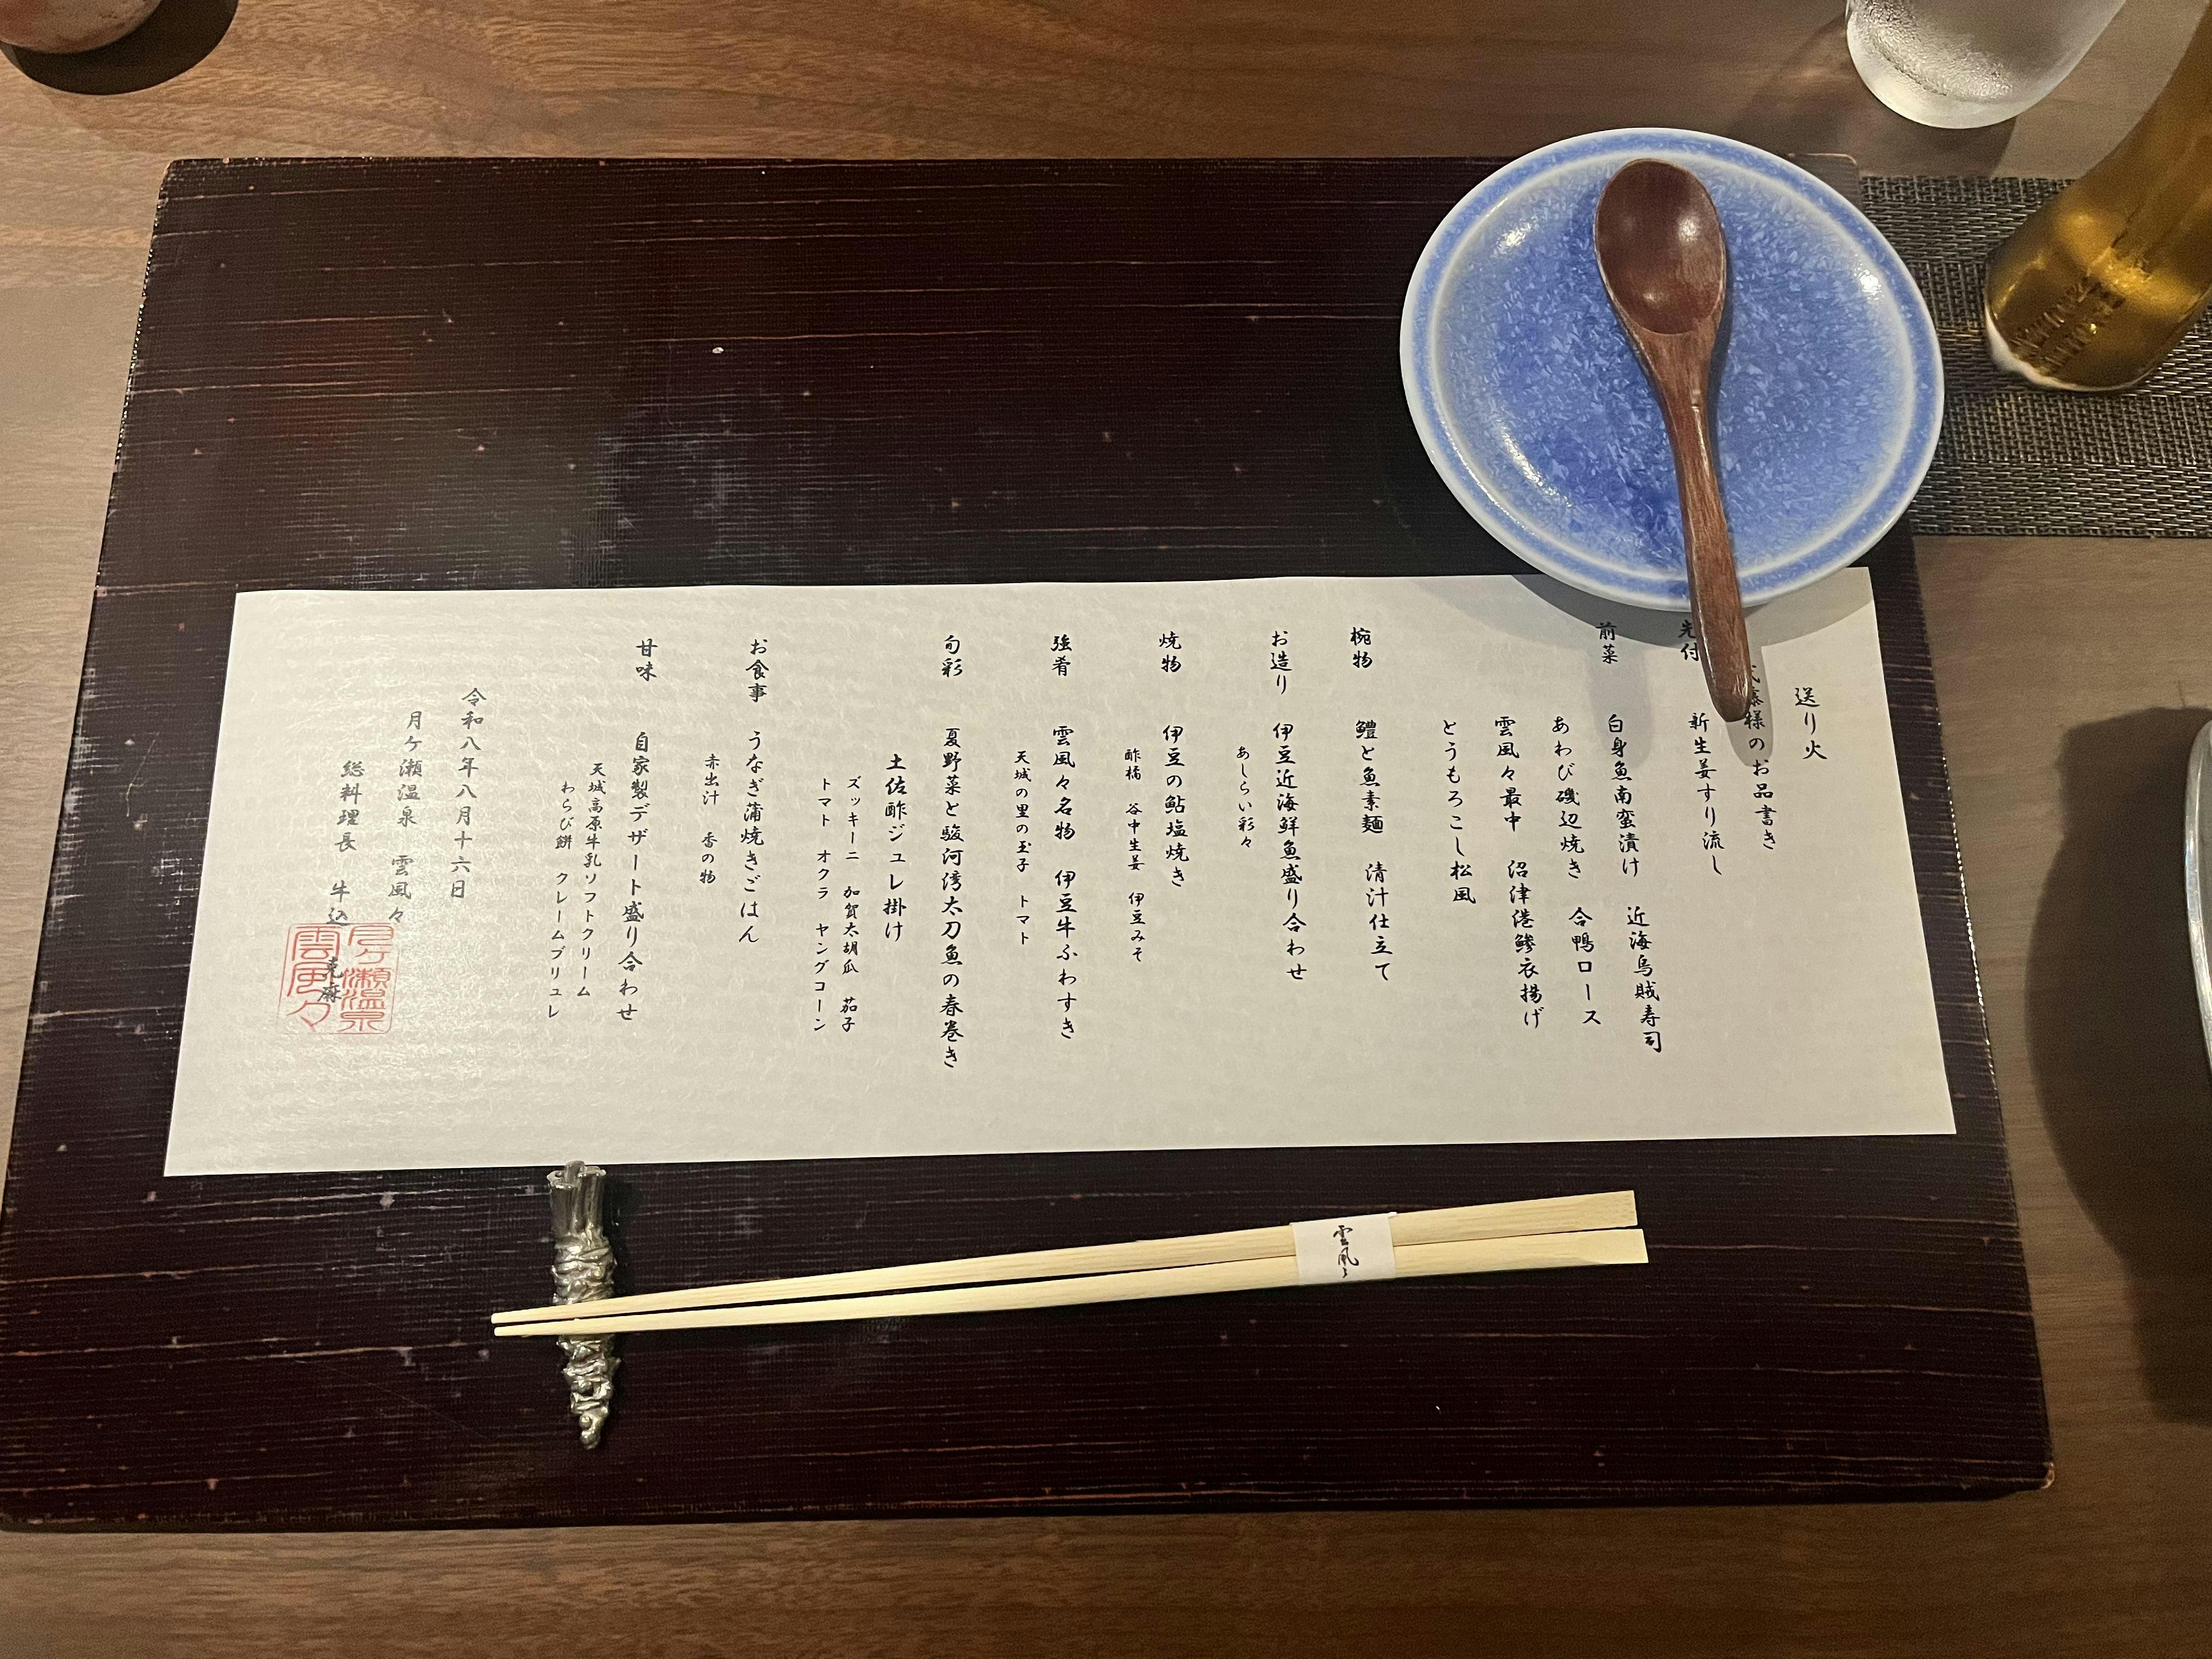 送り火
様のお品書き
先付 新生姜すり流し
前菜 白身魚南蛮漬け 近海烏賊寿司
あわび磯辺焼き 合鴨ロース
雲風々最中 沼津港鯵衣揚げ
とうもろこし松風
椀物 鱧と魚素麺 清汁仕立て
お造り 伊豆近海鮮魚盛り合わせ
あしらい彩々
焼物 伊豆の鮎塩焼き
酢橘 谷中生姜 伊豆みそ
強肴 雲風々名物 伊豆牛ふわすき
天城の里の玉子 トマト
旬彩 夏野菜と駿河湾太刀魚の春巻き
土佐酢ジュレ掛け
ズッキーニ 加賀太胡瓜 茄子
トマト オクラ ヤングコーン
お食事 うなぎ蒲焼きごはん
赤出汁 香の物
甘味 自家製デザート盛り合わせ
天城高原牛乳ソフトクリーム
わらび餅 クレームブリュレ
令和八年八月十六日
月ケ瀬温泉 雲風々
総料理長 牛込
月ケ瀬温泉
雲風々
雲風々